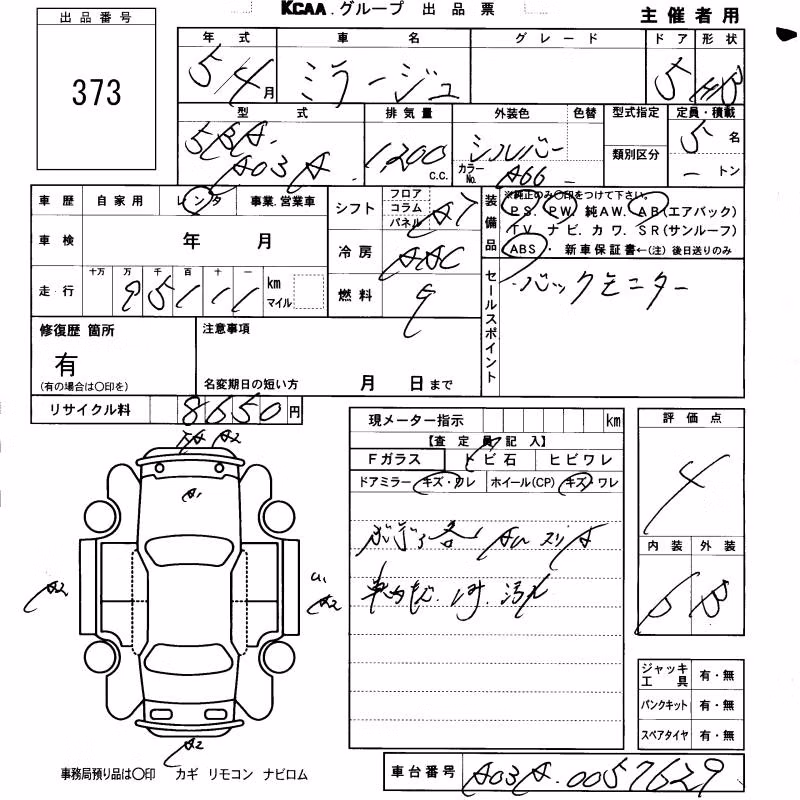 KCAA.グループ 出品票
主催者用
出品番号
373
年式 車名 グレード ドア 形状
5/4月 ミラージュ 5 HB
型式 排気量 外装色 色替 型式指定 定員・積載
5BA. A03A. 1,200 c.c. シルバー 5名
カラーNo. A66 類別区分 ートン
車歴 自家用 レンタ 事業.営業車
シフト フロア コラム パネル AT
装備品 ※純正のみ〇印をつけて下さい。
PS. PW. 純AW. AB(エアバック)
TV ナビ. カワ. SR(サンルーフ)
ABS・新車保証書←(注)後日送りのみ
車検 年 月
冷房 AAC
走行 十万 万 千 百 十 一
95111 km マイル
燃料
セールスポイント
・バックモニター
修復歴 箇所 注意事項
有
(有の場合は〇印を) 名変期日の短い方 月 日まで
リサイクル料 8650円
現メーター指示 km
評価点
【査定員記入】
Fガラス トビ石 ヒビワレ
ドアミラー キズ・ワレ ホイール(CP) キズ・ワレ
4
A2
A1
ボディ各 AU スリA
内装 外装
A2 A2
B
A2
ジャッキ工具 有・無
パンクキット 有・無
スペアタイヤ 有・無
事務局預り品は〇印 カギ リモコン ナビロム
車台番号 A03A.0057629